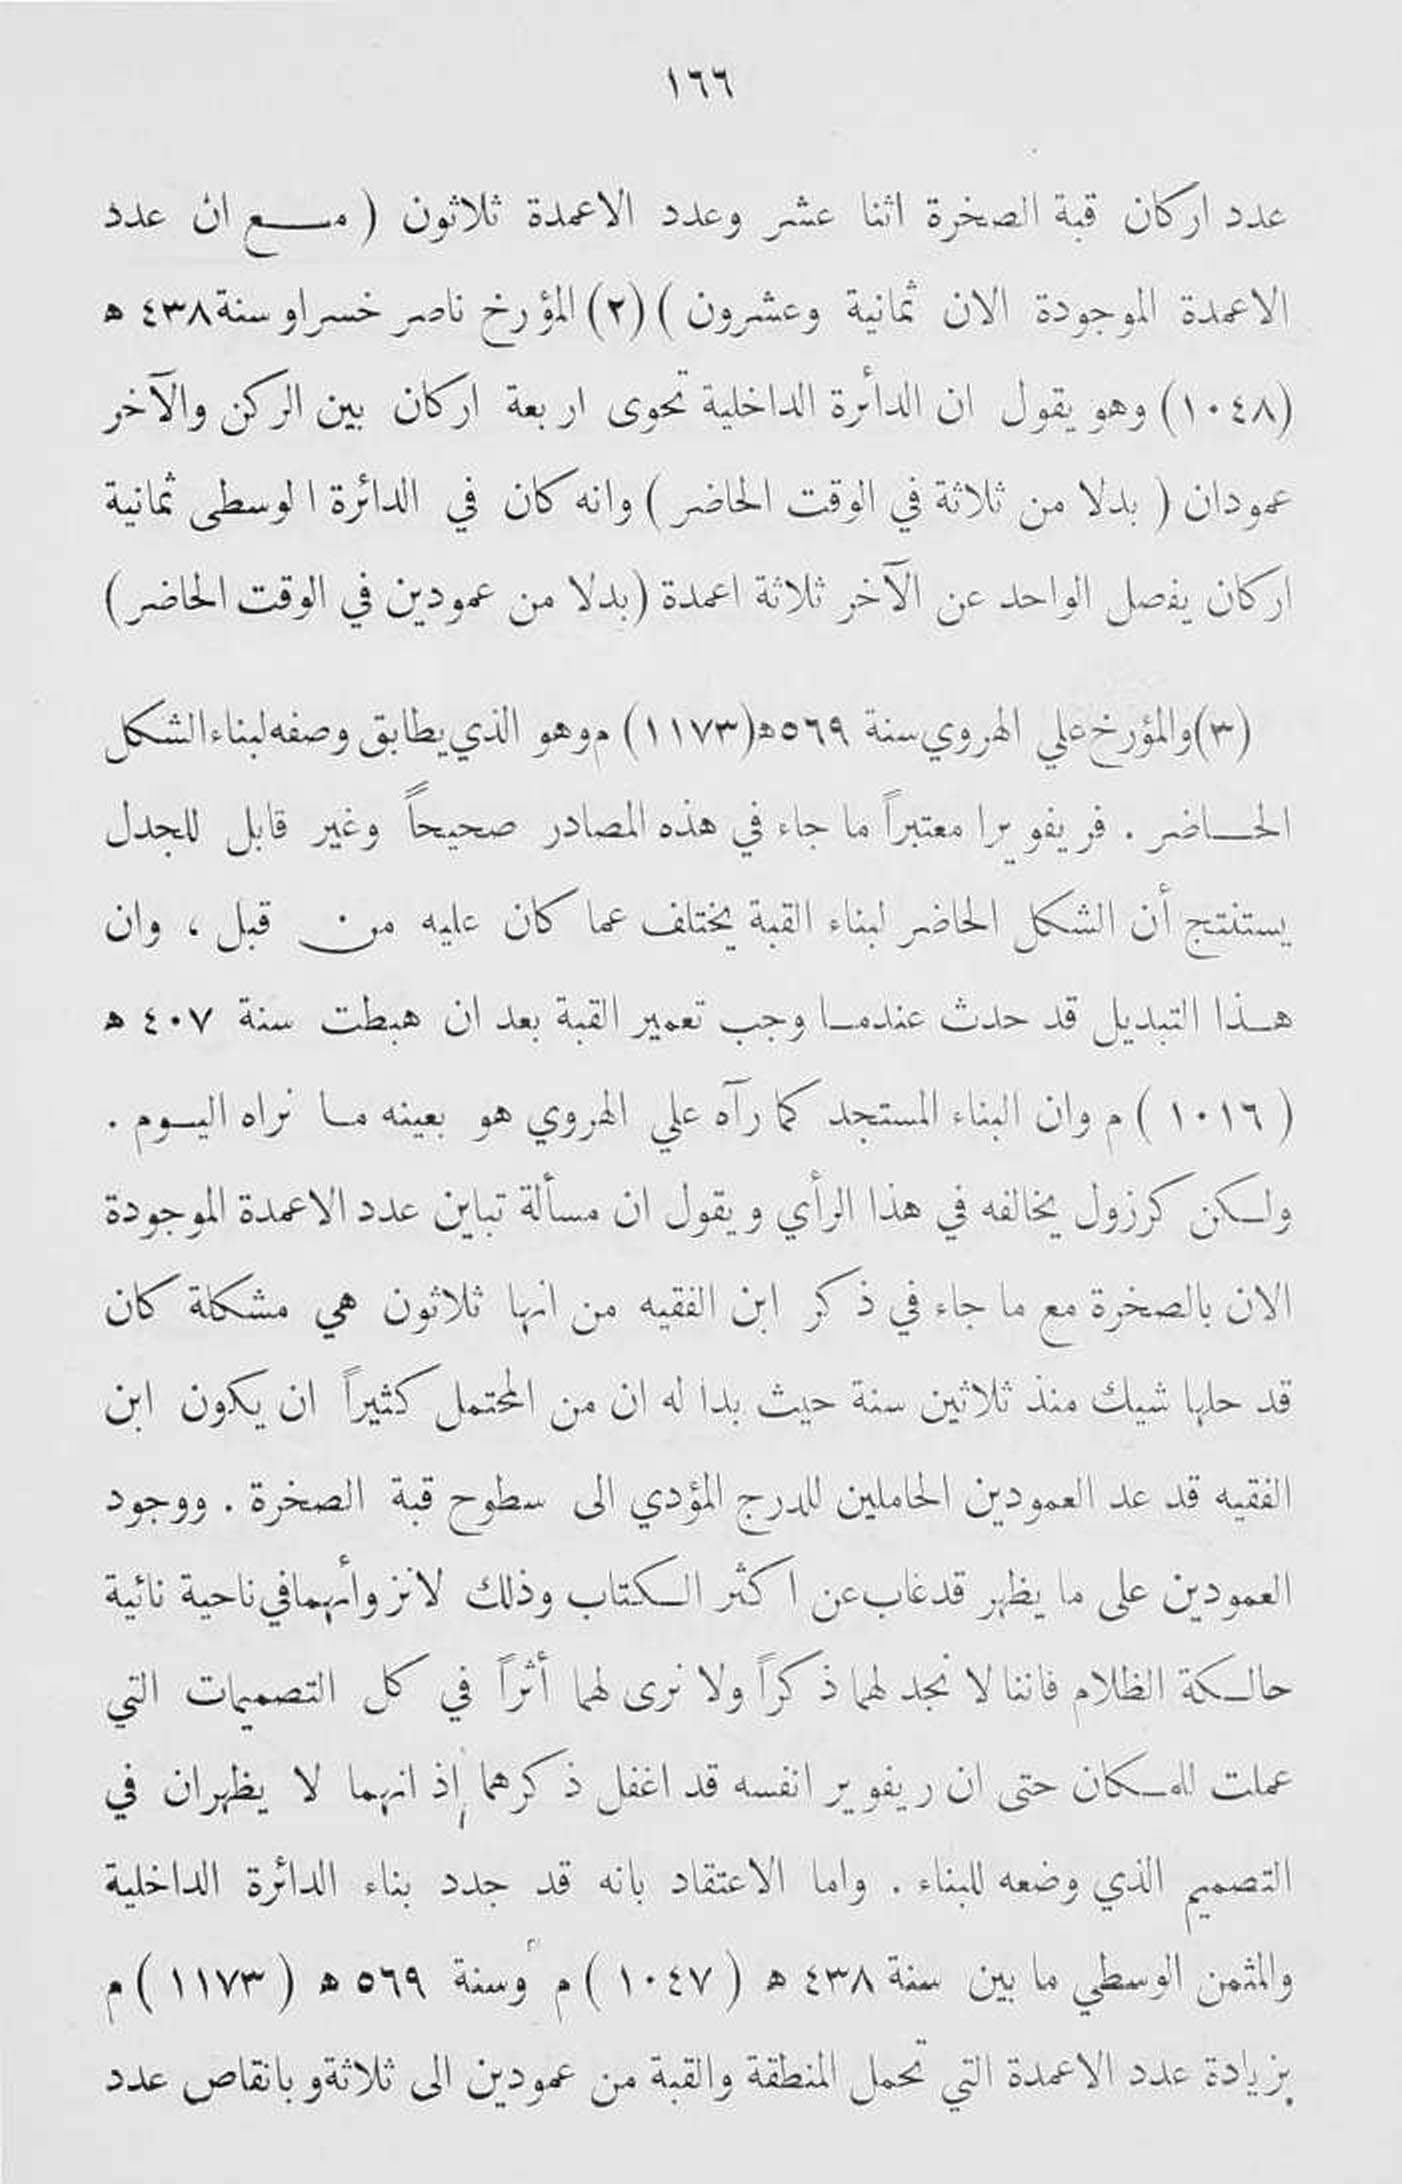 ١٦٦
عدد اركان قبة الصخرة اثنا عشر وعدد الاعمدة ثلاثون ( مـــع ان عدد
الاعمدة الموجودة الان ثمانية وعشرون ) (٢) المؤرخ ناصر خسراو سنة ٤٣٨ ه
(١٠٤٨) وهو يقول ان الدائرة الداخلية تحوى اربعة اركان بين الركن والآخر
عمودان ( بدلا من ثلاثة في الوقت الحاضر ) وانه كان في الدائرة الوسطى ثمانية
اركان يفصل الواحد عن الآخر ثلاثة اعمدة (بدلا من عمودين في الوقت الحاضر)
(٣) والمؤرخ علي الهروي سنة ٥٦٩ ه (١١٧٣) م وهو الذي يطابق وصفه لبناء الشكل
الحـــاضر . فريفويرا معتبراً ما جاء في هذه المصادر صحيحاً وغير قابل للجدل
يستنتج أن الشكل الحاضر لبناء القبة يختلف عما كان عليه من قبل ، وان
هـذا التبديل قد حدث عندمـا وجب تعمير القبة بعد ان هبطت سنة ٤٠٧ ه
( ١٠١٦ ) م وان البناء المستجد كما رآه علي الهروي هو بعينه مـا نراه اليـوم .
ولـكن كرزول يخالفه في هذا الرأي ويقول ان مسألة تباين عدد الاعمدة الموجودة
الان بالصخرة مع ما جاء في ذكر ابن الفقيه من انها ثلاثون هي مشكلة كان
قد حلها شيك منذ ثلاثين سنة حيث بدا له ان من المحتمل كثيراً ان يكون ابن
الفقيه قد عد العمودين الحاملين للدرج المؤدي الى سطوح قبة الصخرة . ووجود
العمودين على ما يظهر قد غاب عن اكثر الـكتاب وذلك لانزوأئهما في ناحية نائية
حالـكة الظلام فاننا لا نجد لهما ذكراً ولا نرى لهما أثراً في كل التصميمات التي
عملت للمـكان حتى ان ريفويرا نفسه قد اغفل ذكرهما إذ انهما لا يظهران في
التصميم الذي وضعه للبناء . واما الاعتقاد بانه قد جدد بناء الدائرة الداخلية
والمثمن الوسطي ما بين سنة ٤٣٨ ه ( ١٠٤٧ ) م وسنة ٥٦٩ ه ( ١١٧٣ ) م
بزيادة عدد الاعمدة التي تحمل المنطقة والقبة من عمودين الى ثلاثة وبانقاص عدد